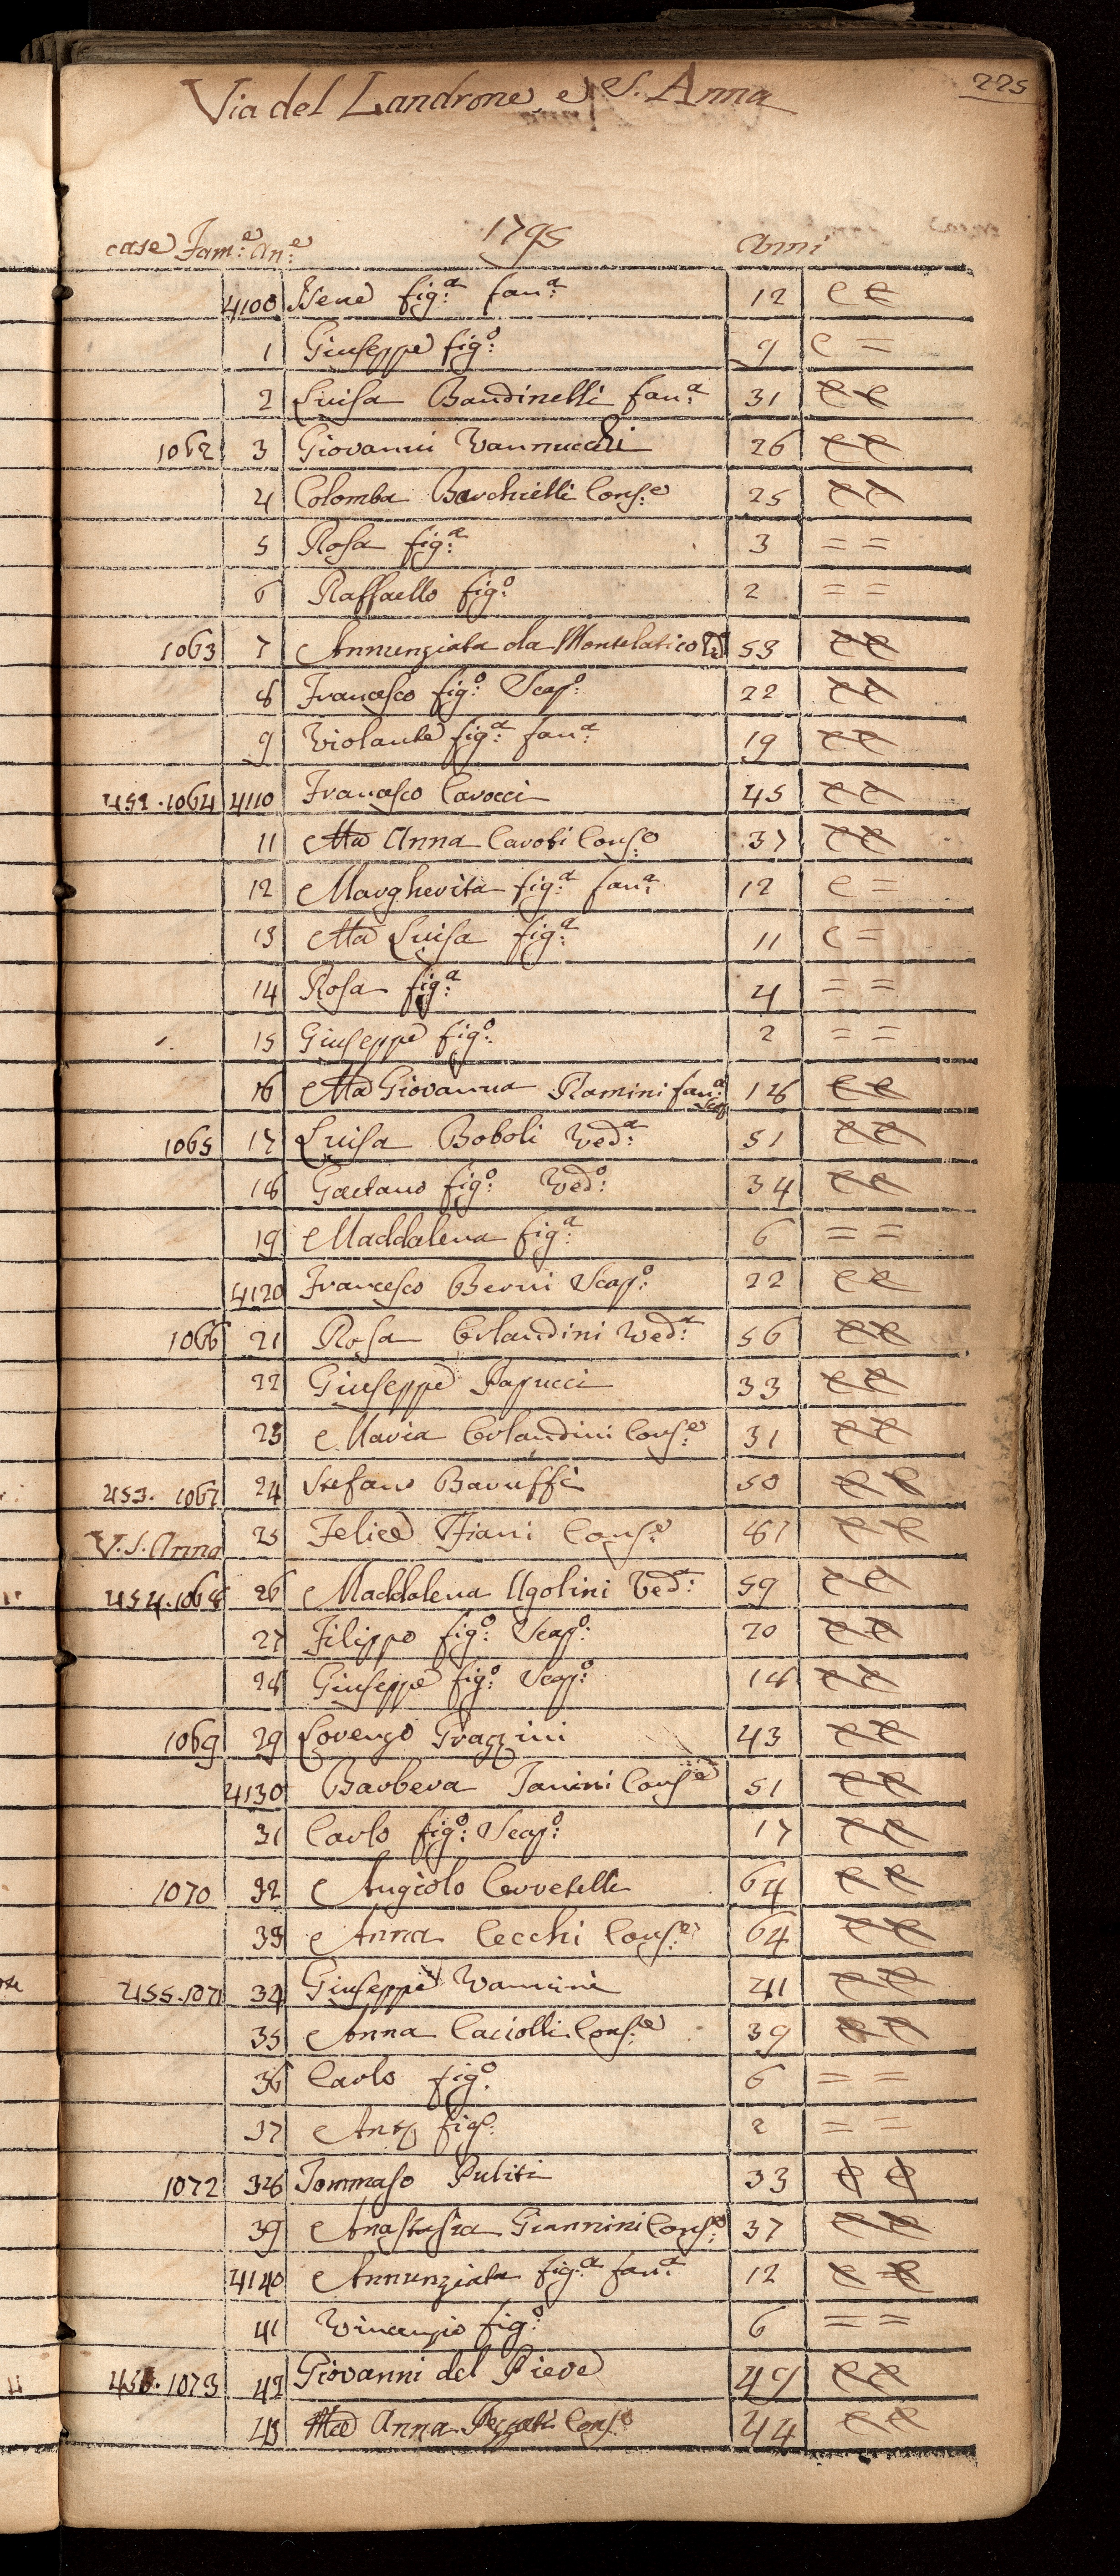 225
Via del Landrone, e S. Anna
1795
case Fam:e An:e Anni
4100 Irene fig:a fan:a 12 C C
1 Giuseppe fig:o 9 C =
2 Luisa Bandinelli fan:a 31 C C
1062 3 Giovanni Vannucchi 26 C C
4 Colomba Barchielli Cons:e 25 C C
5 Rosa fig:a 3 = =
6 Raffaello fig:o 2 = =
1063 7 Annunziata da Montelatico 53 C C
8 Francesco fig:o Scap:o 22 C C
9 Violante fig:a fan:a 19 C C
452. 1064 4110 Francesco Carocci 45 C C
11 Ma Anna Carobi Cons:e 37 C C
12 Margherita fig:a fan:a 12 C =
13 Ma Luisa fig:a 11 C =
14 Rosa fig:a 4 = =
15 Giuseppe fig:o 2 = =
16 Ma Giovanna fan:a 18 C C
1065 17 Luisa Boboli Ved:a 51 C C
18 Gaetano fig:o Ved:o 34 C C
19 Maddalena fig:a 6 = =
4120 Francesco Berni Scap:o 22 C C
1066 21 Rosa Orlandini Ved:a 56 C C
22 Giuseppe Papucci 33 C C
23 Maria Orlandini Cons:e 31 C C
453. 1067 24 Stefano Baruffi 50 C C
V. S. Anna 25 Felice Cons:e C C
454. 1068 26 Maddalena Ugolini Ved:a 59 C C
27 Filippo fig:o Scap:o 20 C C
28 Giuseppe fig:o Scap:o 18 C C
1069 29 Lorenzo Grazzini 43 C C
4130 Barbera Cons:e 51 C C
31 Carlo fig:o Scap:o 17 C C
1070 32 Angiolo Cervetelli 64 C C
33 Anna Cecchi Cons:e 64 C C
455. 1071 34 Giuseppe Vannini 41 C C
35 Anna Caciolli Cons:e 39 C C
36 Carlo fig:o 6 = =
37 Ant:o fig:o 2 = =
1072 38 Tommaso Puliti 33 C C
39 Anastasia Giannini Cons:e 37 C C
4140 Annunziata fig:a fan:a 12 C C
41 Vincenzio fig:o 6 = =
456. 1073 42 Giovanni del Pieve 49 C C
43 Ma Anna Cons:e 44 C C